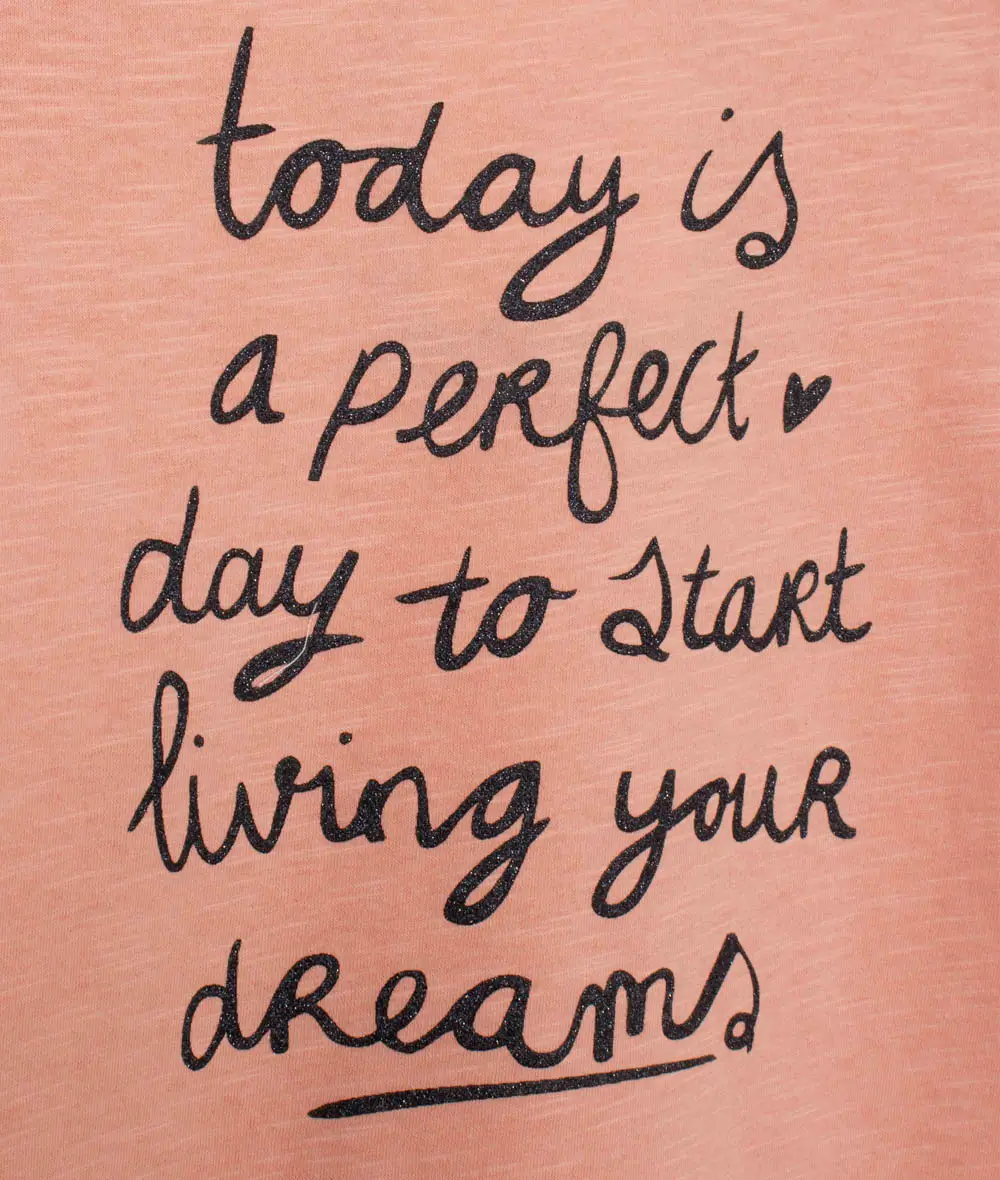 today is
a perfect ♥
day to start
living your
dreams